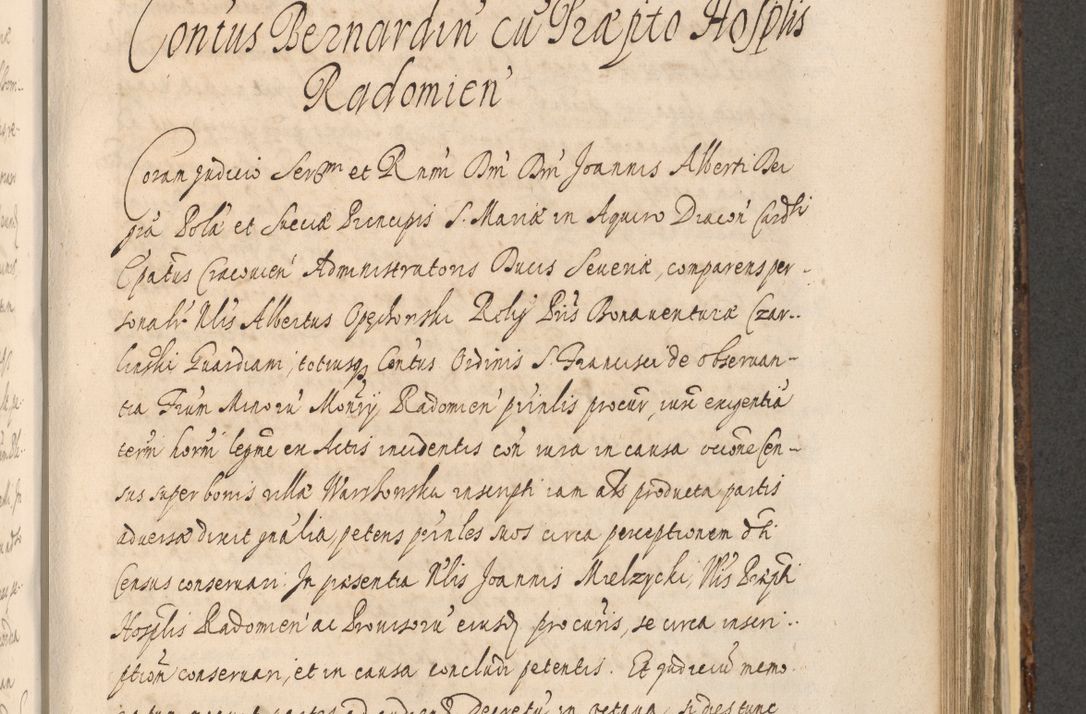 Contus Bernardin' cu' Præpto Hosplis
Radomien'
Coram judicio Serm̃ et Rnm̃i Dm̃ Dm̃ Joannis Alberti Dei
gra Pol' et Sueciæ Principis S. Mariæ in Aquiro Diacon' Cardli
Epatus Cracovien' Administratoris Ducis Severiæ, comparens per-
sonalr Nlis Albertus Opęchowski Relig' Pris Bonaventuræ Czar-
linski Guardiani, totiusq Contus Ordinis S. Francisci de observan-
tia Frum Minoru' Monrij Radomien' prinlis procur, iuri exigentia
termi horni legme ex Actis incidentis con iura in causa ocione Cen-
sus super bonis villæ Warchowska inscripti iam als producta partis
adversæ dixit gnalia, petens prinles suos circa perceptionem dti
Census conservari. In præsentia Nlis Joannis Mielzycki, Nlis Præpti
Hosplis Radomien' ac Provisoru' eiusd procuris, se circa inscri-
ption conservari, et in causa concludi petentis. Et judiciu' memo
Decretu' in octava, si dies tunc